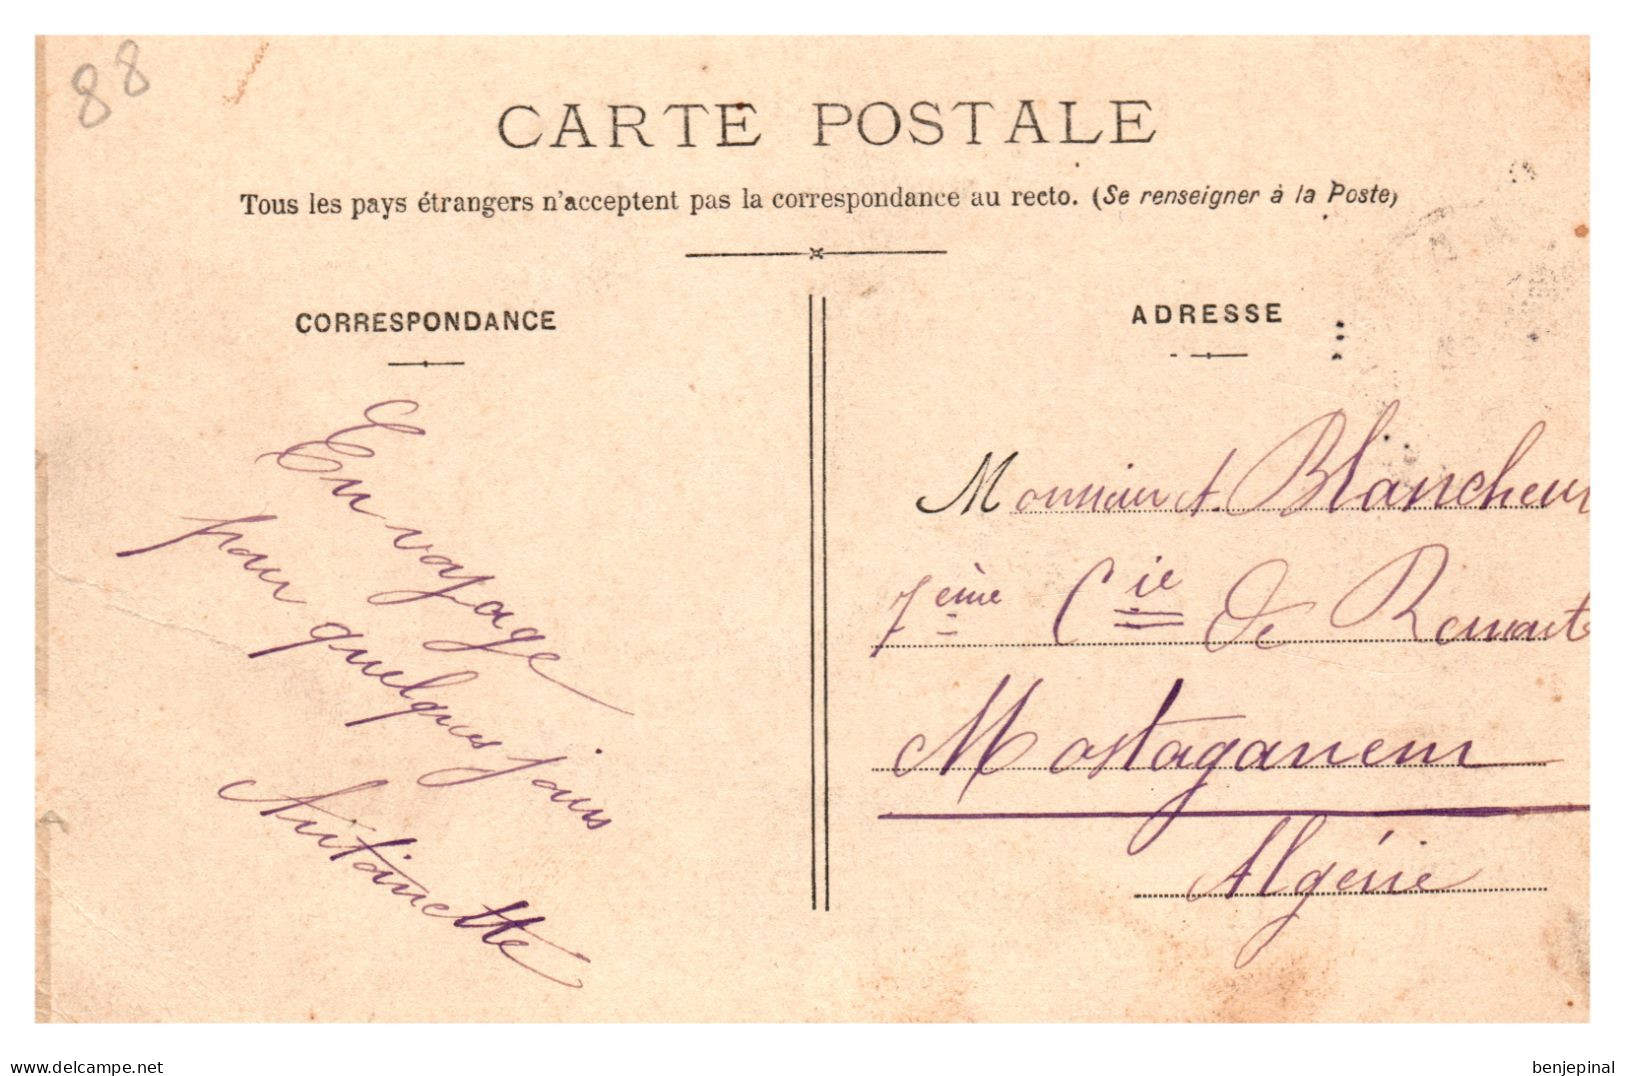 88
CARTE POSTALE
Tous les pays étrangers n'acceptent pas la correspondance au recto. (Se renseigner à la Poste)
CORRESPONDANCE
En voyage
pour quelques jours
Antoinette
ADRESSE
Monsieur A. Blancheur
7ème Cie de Remonte
Mostaganem
Algérie
www.delcampe.net
benjepinal